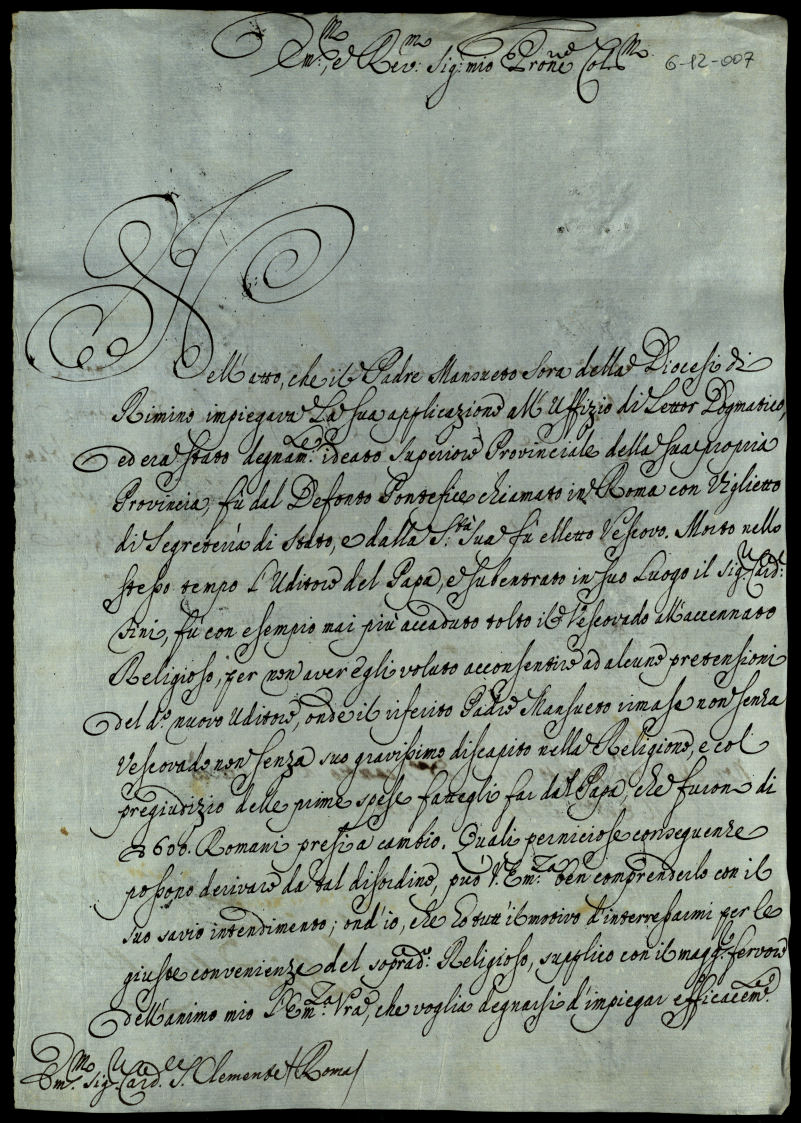 Em.mo, e Rev.mo Sig.r mio P\ro\ne Col.mo
6-12-007
Nell'atto, che il Padre Mansueto Sora della Diocesi di
Rimino impiegava La sua applicazione all'Uffizio di Lettor Dogmatico,
ed era stato degnam.te ideato Superiore Provinciale della sua propria
Provincia, fù dal Defonto Pontefice chiamato in Roma con Viglietto
di Segreteria di Stato, e dalla S.tà Sua fù elletto Vescovo. Morto nello
stesso tempo L'Uditore del Papa, e subentrato in suo Luogo il Sig.r Card.le
Fini, fù con esempio mai più accaduto tolto il Vescovado all'accennato
Religioso, per non aver egli voluto acconsentire ad alcune pretensioni
del d.o nuovo Uditore, onde il riferito Padre Mansueto rimase non senza
Vescovado non senza suo gravissimo discapito nella Religione, e col
pregiudizio delle prime spese fattegli far dal Papa, che furon di
600. Romani presi a cambio. Quali perniciose conseguenze
possono derivare da tal disordine, può V. Em.za ben comprenderlo con il
suo savio intendimento; ond'io, che ho tutt'il motivo d'interressarmi per le
giuste convenienze del soprad.o Religioso, supplico con il magg.r fervore
dell'animo mio l'Em.za Vra, che voglia degnarsi d'impiegar efficacem.te
Em.mo Sig.r Card.le S. Clemente /Roma/